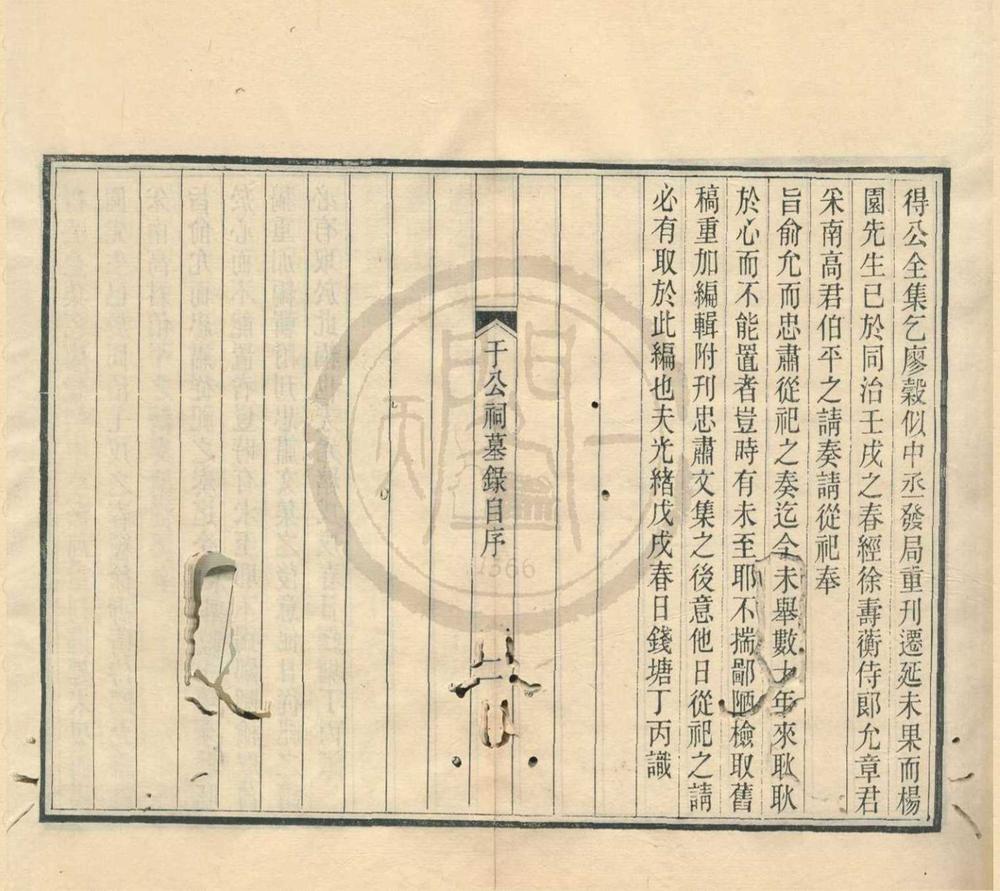 得公全集乞廖穀似中丞發局重刊遷延未果而楊
園先生已於同治壬戌之春經徐壽蘅侍郎允章君
采南高君伯平之請奏請從祀奉
旨俞允而忠肅從祀之奏迄今未舉數十年來耿耿
於心而不能置者豈時有未至耶不揣鄙陋檢取舊
稿重加編輯附刊忠肅文集之後意他日從祀之請
必有取於此編也夫光緒戊戌春日錢塘丁丙識
于公祠墓錄自序
二